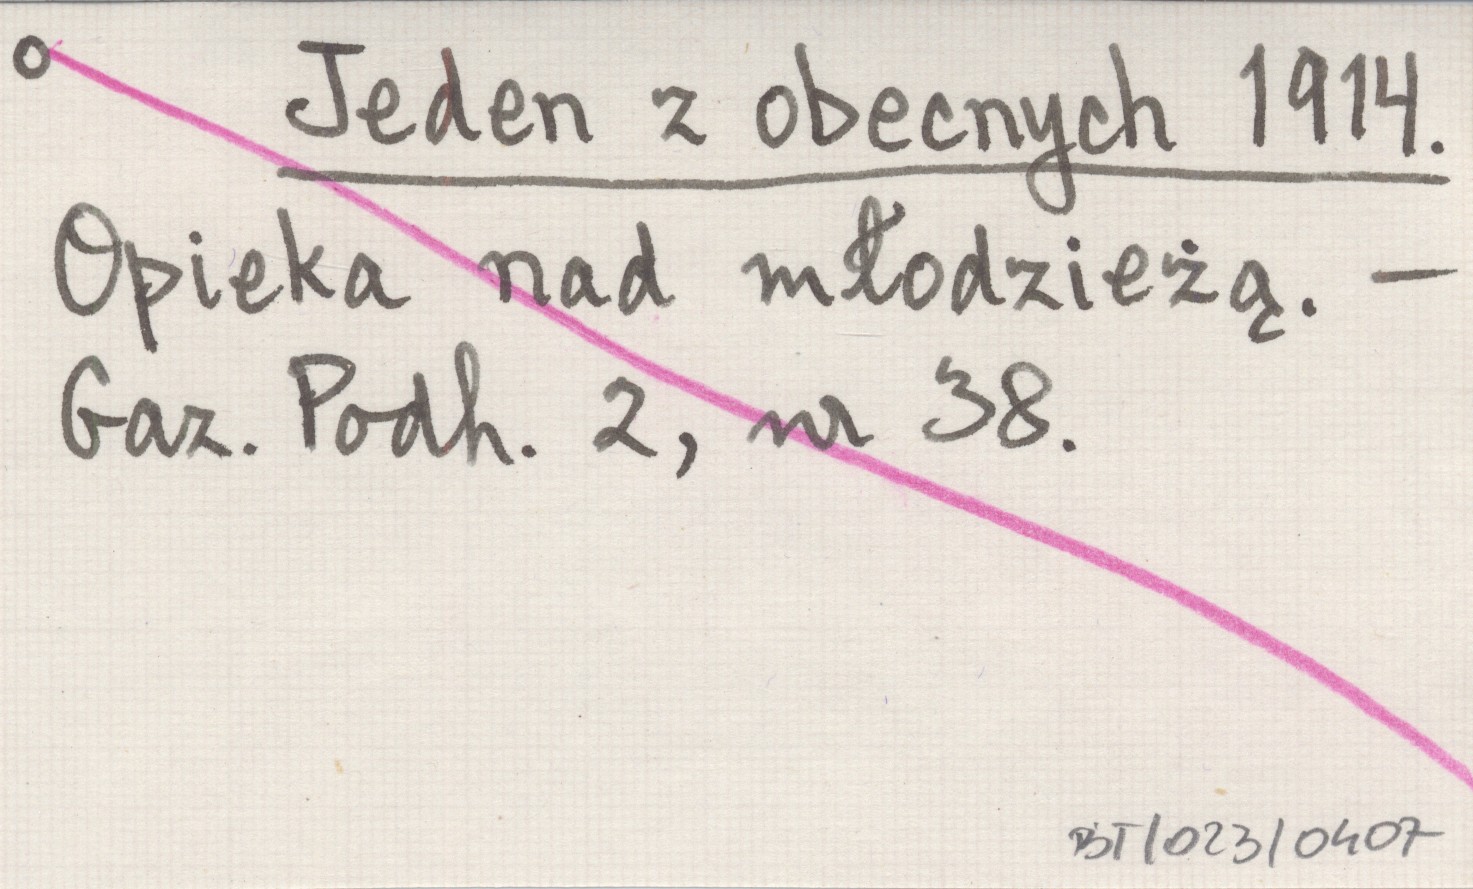 Jeden z obecnych 1914.
Opieka nad młodzieżą. —
Gaz. Podh. 2, nr 38.
BT/023/0407